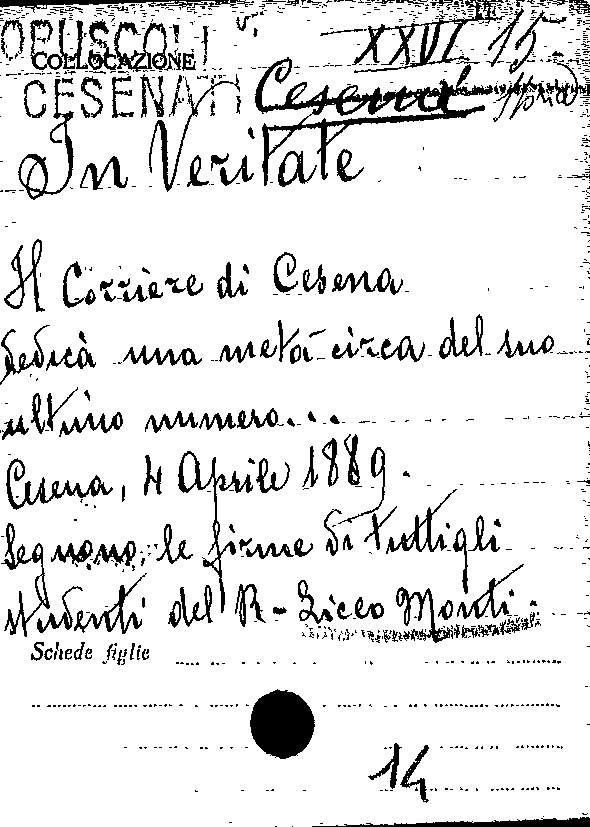 OPUSCOLI
COLLOCAZIONE
CESENATI
XXVI 15
Cesena
Storia
In Veritate
Il Corriere di Cesena
dedicà una metà circa del suo
ultimo numero...
Cesena, 4 Aprile 1889.
Seguono le firme di tutti gli
studenti del R- Liceo Monti.
Schede figlie
14